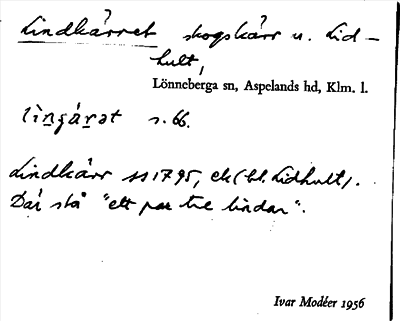 Lindkärret skogskärr u. Lid-
hult,
Lönneberga sn, Aspelands hd, Klm. l.
s. 66.
Lindkärr SS 1795, ek (bl. Lidhult).
Där stå "ett par tre lindar".
Ivar Modéer 1956